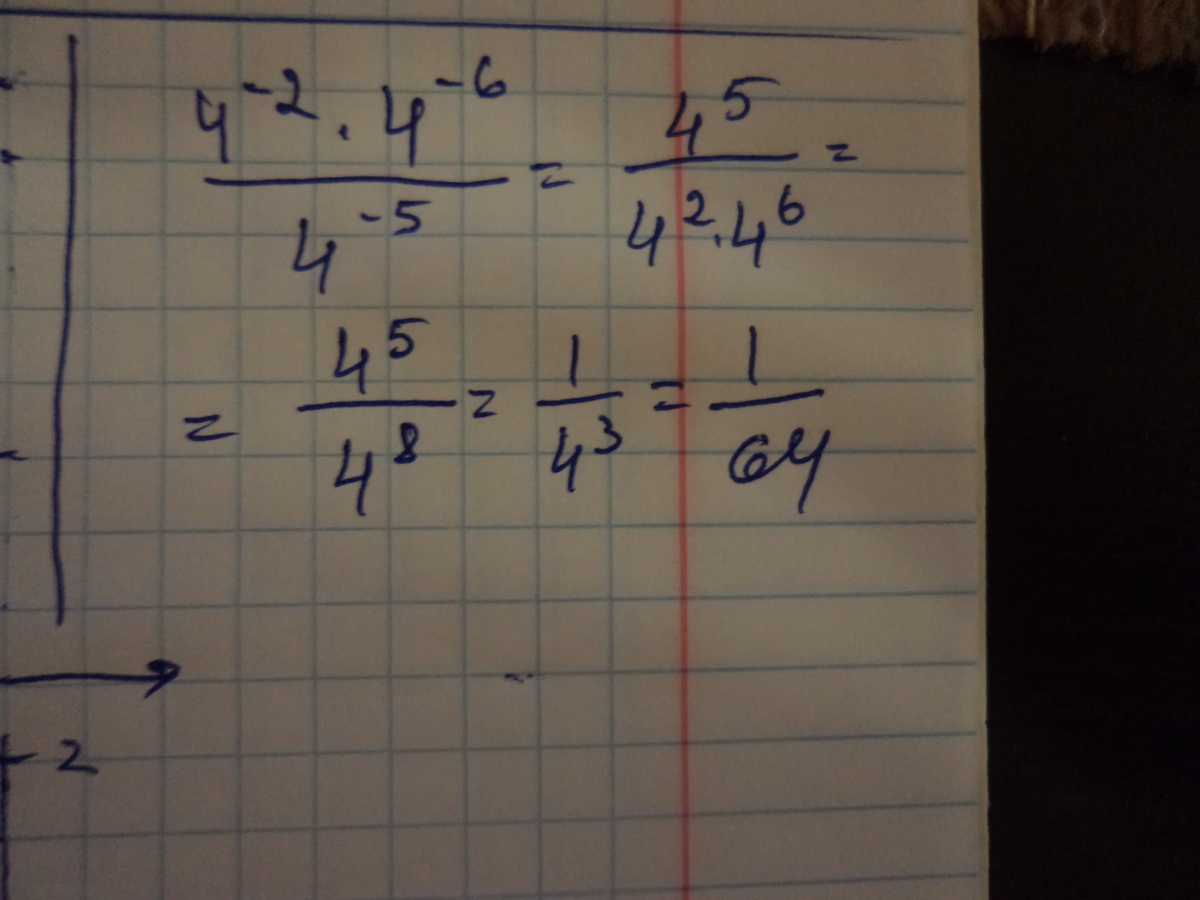 4⁻² · 4⁻⁶ / 4⁻⁵ = 4⁵ / 4² · 4⁶ =
= 4⁵ / 4⁸ = 1 / 4³ = 1 / 64
- 2